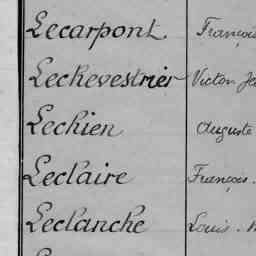 Lecarpont François
Lechevestrier Victor
Lechien Auguste
Leclaire François.
Leclanche Louis.